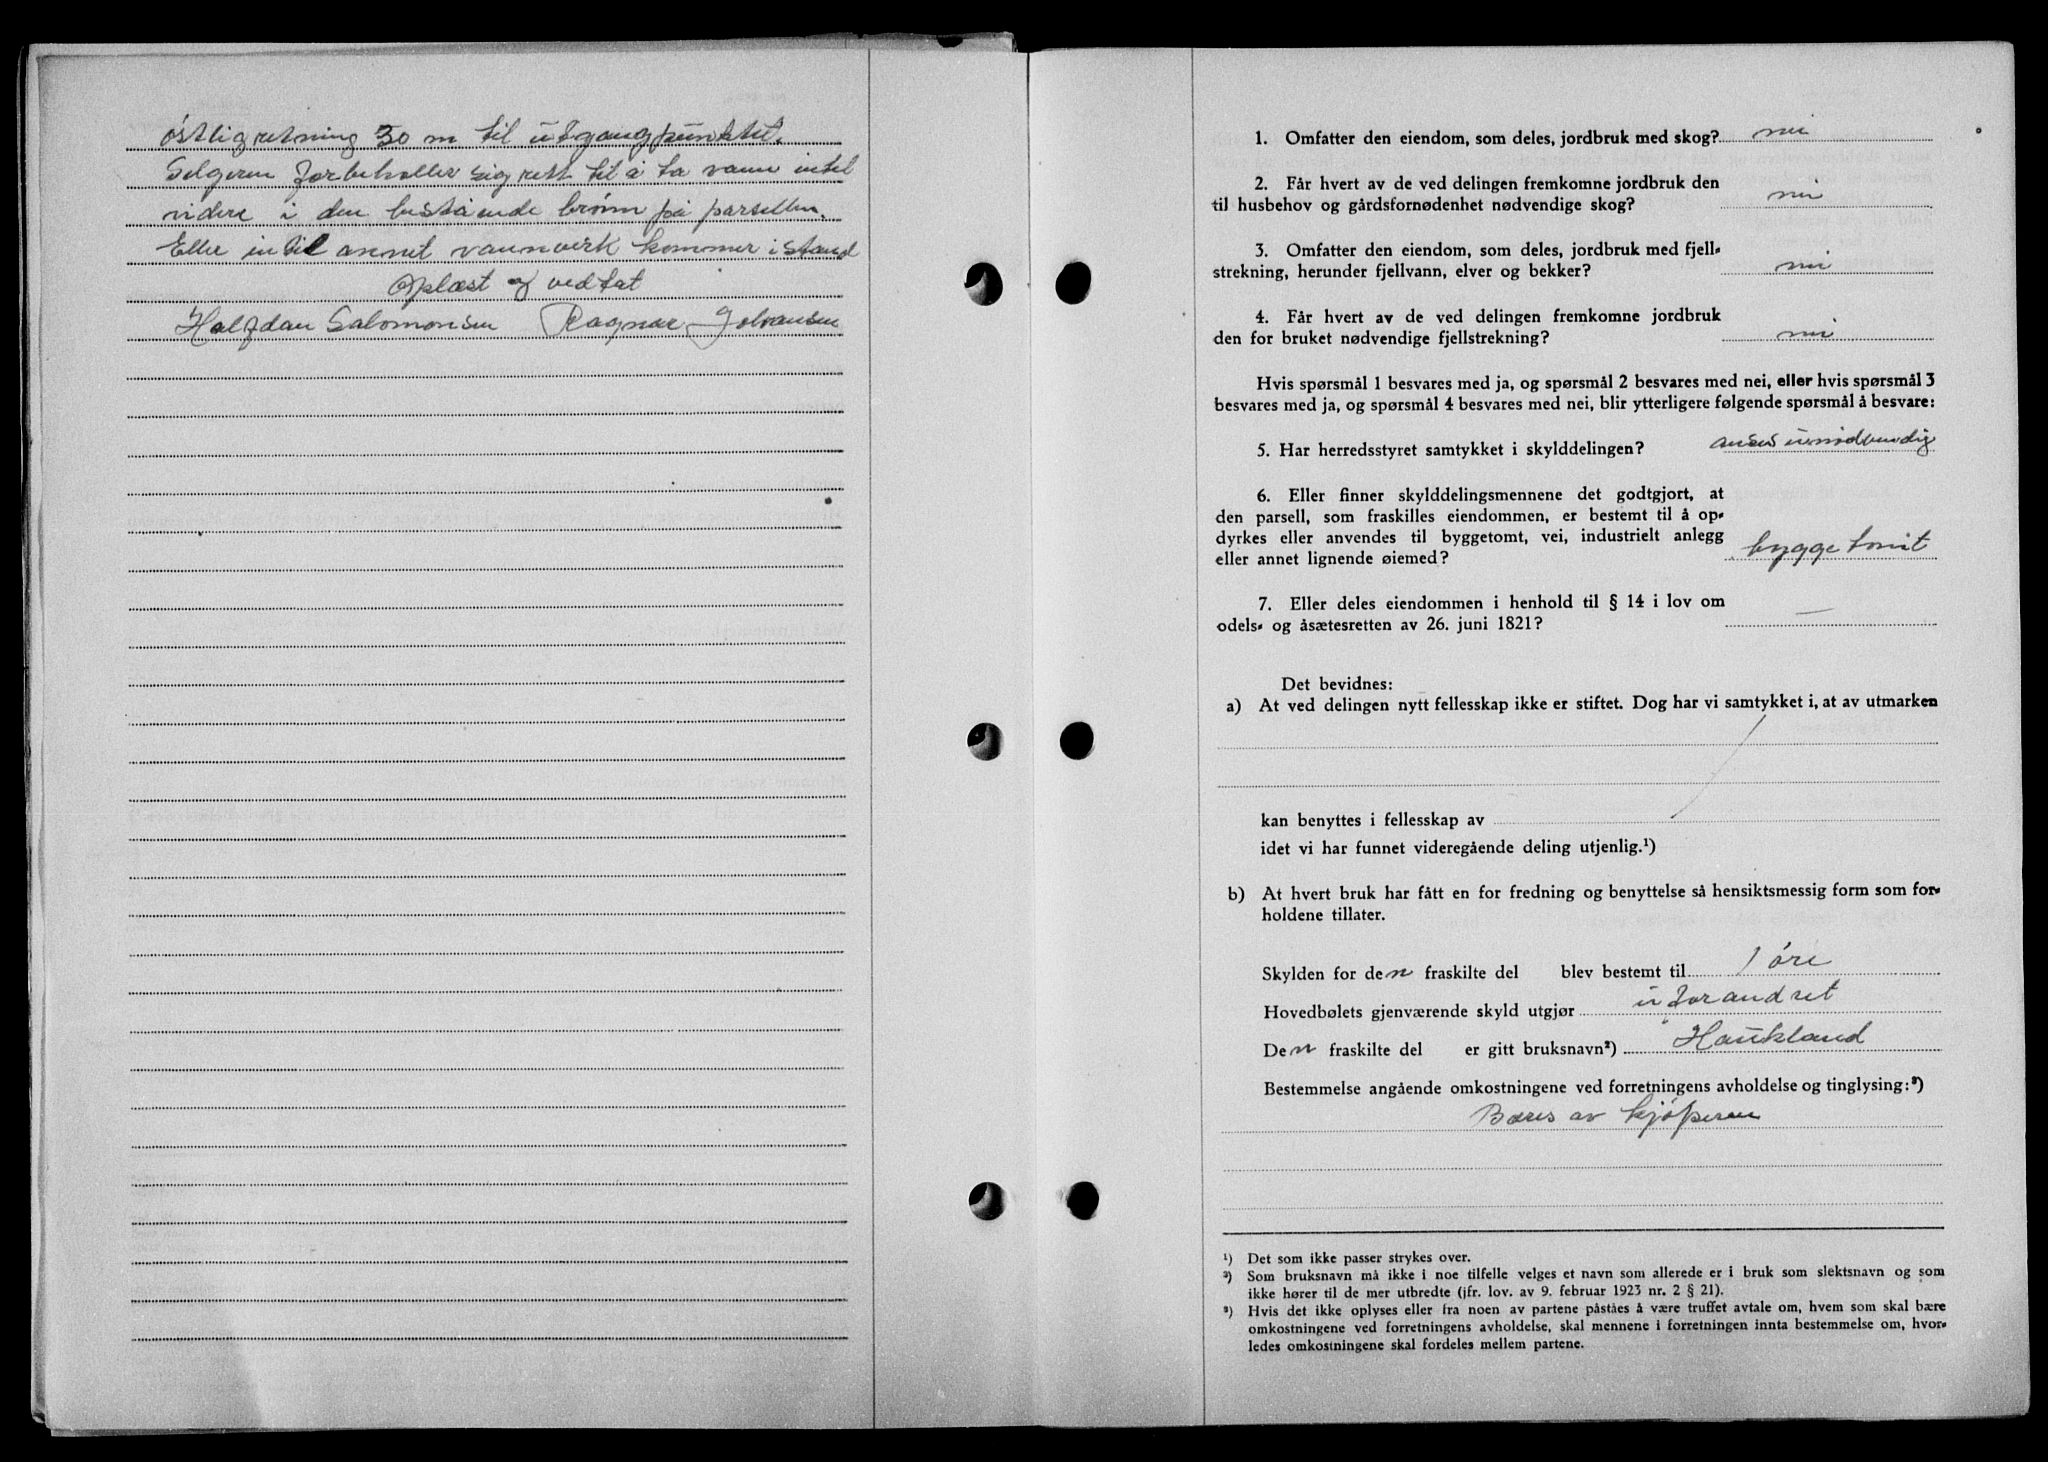 østlig retning 30 m til utgangpunktet.
Selgeren forbeholler sig rett til å ta vann intil
videre i den bestående brønn på parsellen.
Eller intil annet vannverk kommer istand
Oplæst og vedtat
Halfdan Salomonsen Ragnar Johansen
1. Omfatter den eiendom, som deles, jordbruk med skog? nei
2. Får hvert av de ved delingen fremkomne jordbruk den
til husbehov og gårdsfornødenhet nødvendige skog? nei
3. Omfatter den eiendom, som deles, jordbruk med fjell-
strekning, herunder fjellvann, elver og bekker? nei
4. Får hvert av de ved delingen fremkomne jordbruk
den for bruket nødvendige fjellstrekning? nei
Hvis spørsmål 1 besvares med ja, og spørsmål 2 besvares med nei, eller hvis spørsmål 3
besvares med ja, og spørsmål 4 besvares med nei, blir ytterligere følgende spørsmål å besvare:
5. Har herredsstyret samtykket i skylddelingen? anses unødvendig
6. Eller finner skylddelingsmennene det godtgjort, at
den parsell, som fraskilles eiendommen, er bestemt til å op-
dyrkes eller anvendes til byggetomt, vei, industrielt anlegg
eller annet lignende øiemed? byggetomt
7. Eller deles eiendommen i henhold til § 14 i lov om
odels- og åsætesretten av 26. juni 1821? —
Det bevidnes:
a) At ved delingen nytt fellesskap ikke er stiftet. Dog har vi samtykket i, at av utmarken
kan benyttes i fellesskap av
idet vi har funnet videregående deling utjenlig.¹)
b) At hvert bruk har fått en for fredning og benyttelse så hensiktsmessig form som for-
holdene tillater.
Skylden for den fraskilte del blev bestemt til 1 øre
Hovedbølets gjenværende skyld utgjør uforandret
Den fraskilte del er gitt bruksnavn²) Haukland
Bestemmelse angående omkostningene ved forretningens avholdelse og tinglysing:³)
Bæres av kjøperen
¹) Det som ikke passer strykes over.
²) Som bruksnavn må ikke i noe tilfelle velges et navn som allerede er i bruk som slektsnavn og som
ikke hører til de mer utbredte (jfr. lov. av 9. februar 1923 nr. 2 § 21).
³) Hvis det ikke oplyses eller fra noen av partene påståes å være truffet avtale om, hvem som skal bære
omkostningene ved forretningens avholdelse, skal mennene i forretningen innta bestemmelse om, hvor-
ledes omkostningene skal fordeles mellem partene.